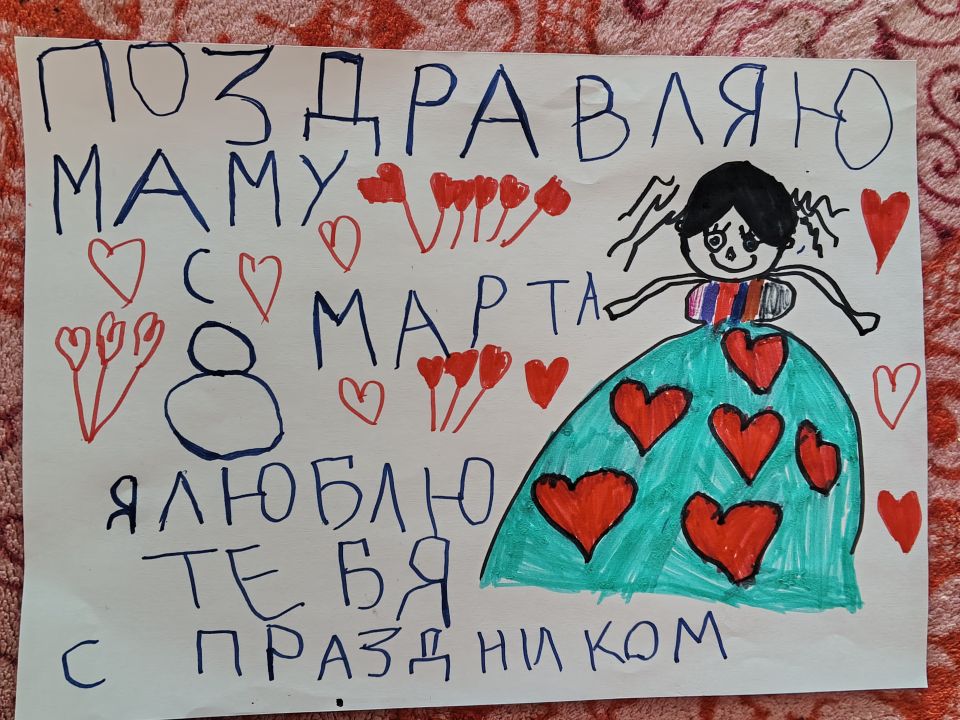 ПОЗДРАВЛЯЮ
МАМУ
С
8 МАРТА
Я ЛЮБЛЮ
ТЕБЯ
С ПРАЗДНИКОМ